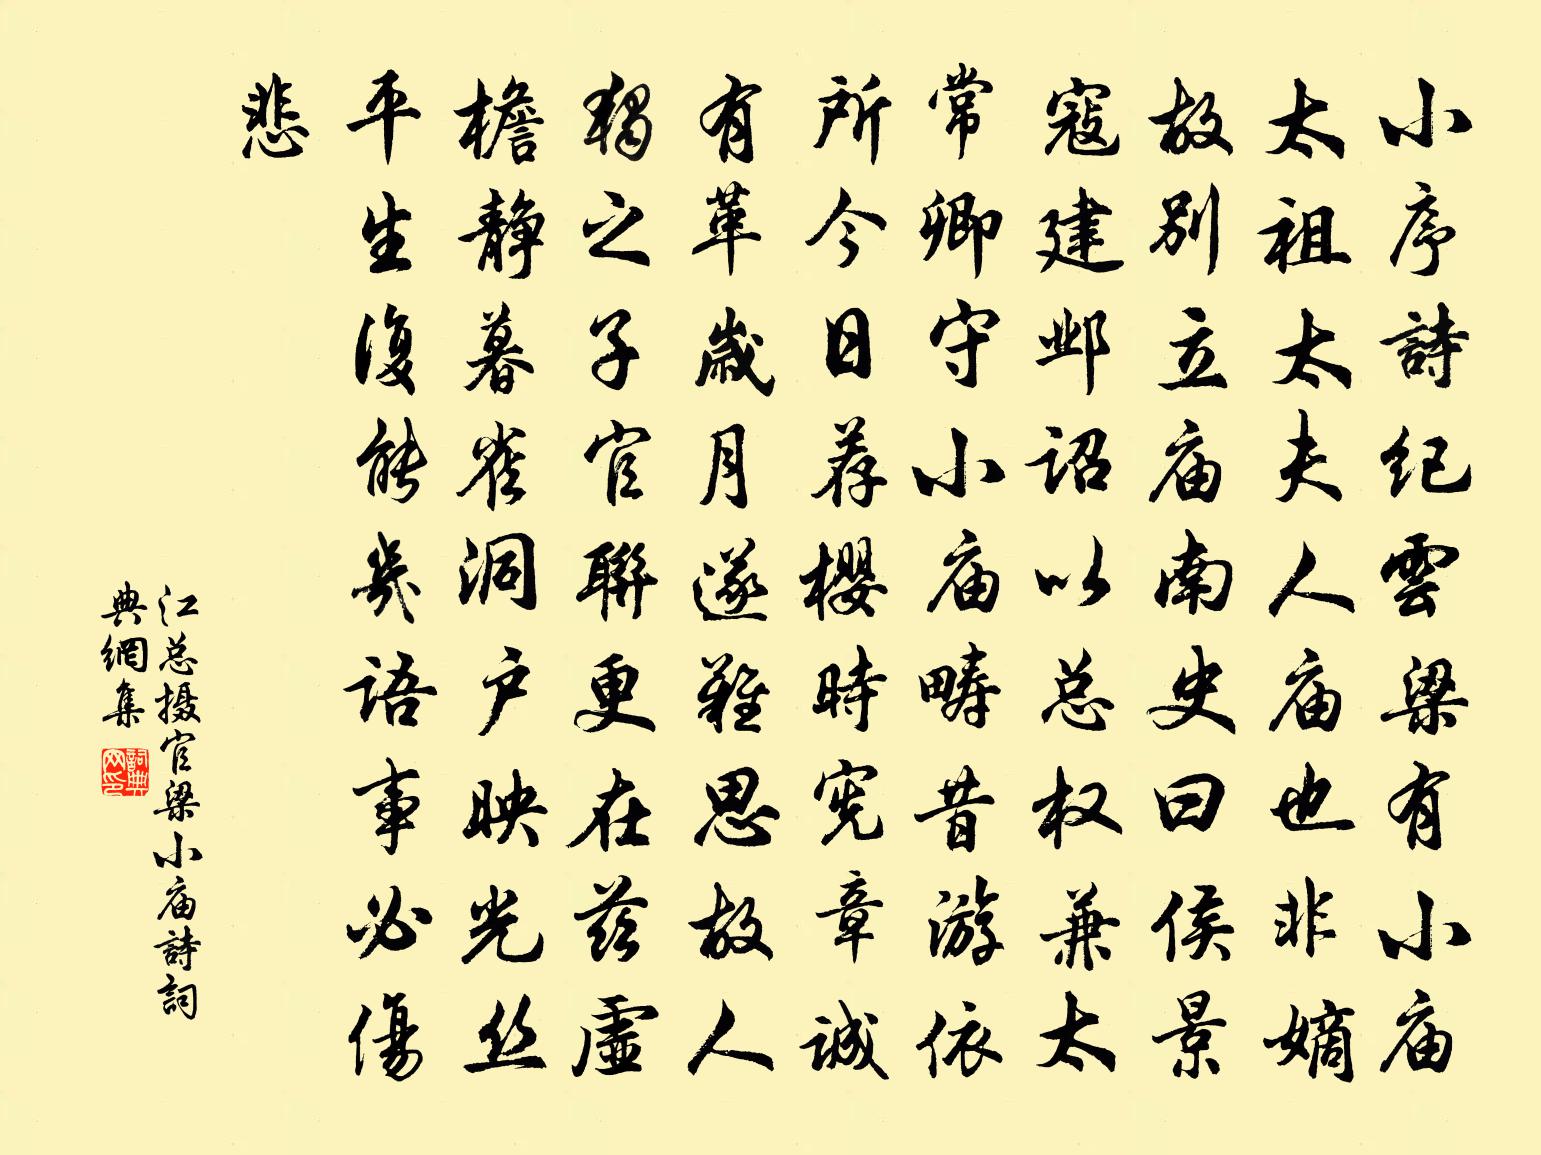 小序詩紀雲梁有小庙
太祖太夫人庙也非嫡
故别立庙南史曰侯景
寇建邺诏以总权兼太
常卿守小庙畴昔游依
所今日荐樱時宪章誠
有革歲月遂難思故人
獨之子官聯更在兹虚
檐静暮雀洞户映光丝
平生復能幾语事必傷
悲
江总摄官梁小庙詩詞
典網集
詞典
网印